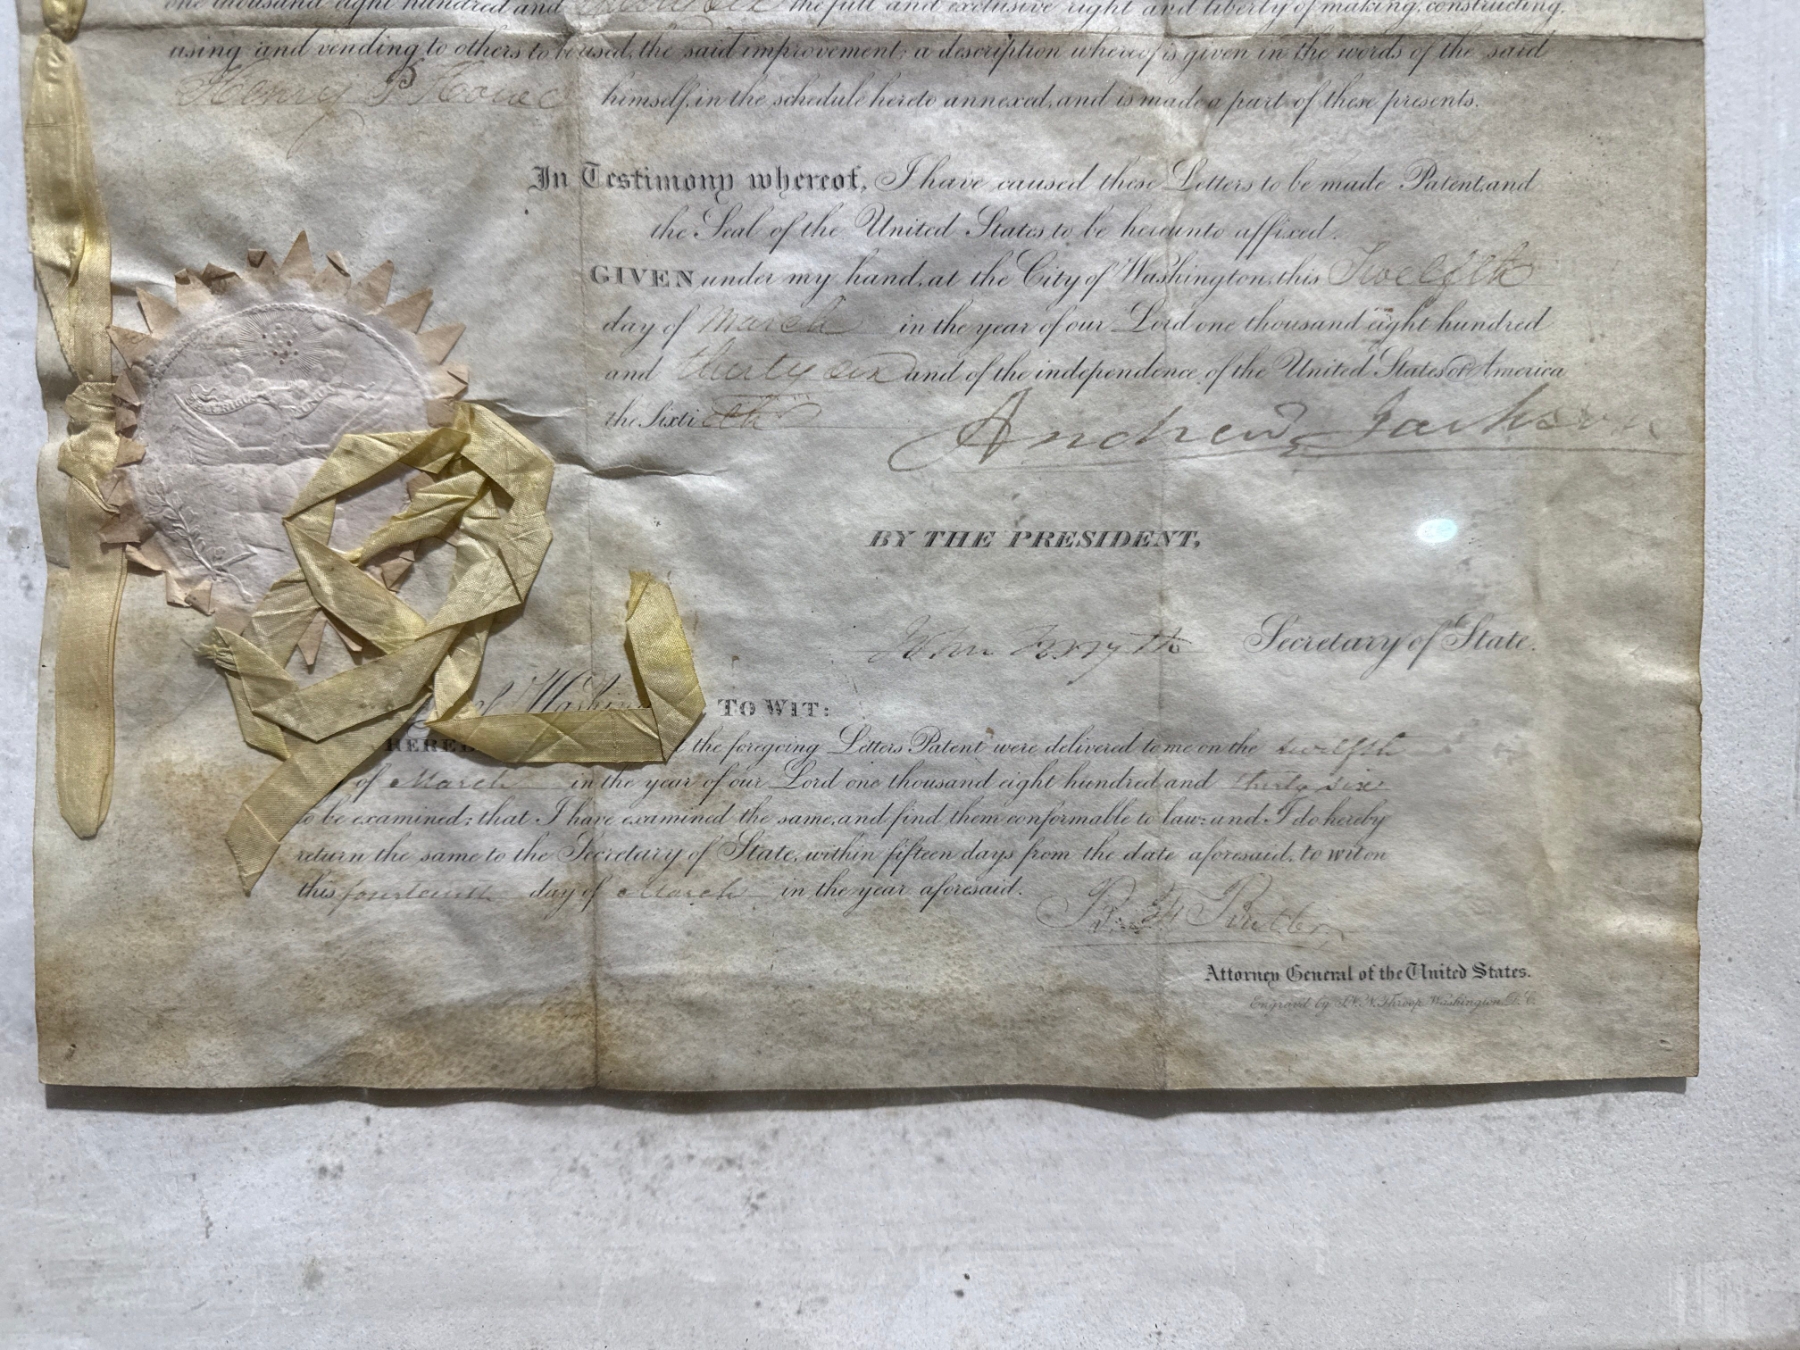 one thousand eight hundred and thirty six the full and exclusive right and liberty of making, constructing,
using and vending to others to be used, the said improvement; a description whereof is given in the words of the said
Henry B himself, in the schedule hereto annexed, and is made a part of these presents.
In Testimony whereof, I have caused these Letters to be made Patent, and
the Seal of the United States to be hereunto affixed.
GIVEN under my hand, at the City of Washington, this Twelfth
day of March in the year of our Lord one thousand eight hundred
and thirty six and of the independence of the United States of America
the Sixtieth
Andrew Jackson
BY THE PRESIDENT,
John Forsyth Secretary of State.
of Washin TO WIT:
HEREB the foregoing Letters Patent were delivered to me on the twelfth
of March in the year of our Lord one thousand eight hundred and thirty six
to be examined; that I have examined the same, and find them conformable to law; and I do hereby
return the same to the Secretary of State, within fifteen days from the date aforesaid, to wit on
this fourteenth day of March in the year aforesaid.
B. F. Butler
Attorney General of the United States.
Engraved by Throop Washington D. C.